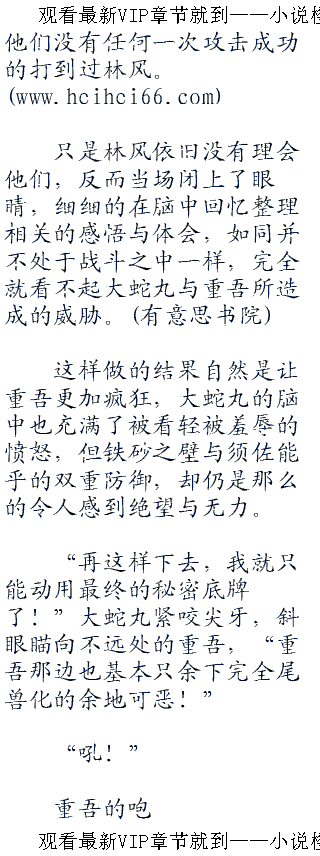 观看最新VIP章节就到——小说检
他们没有任何一次攻击成功
的打到过林风。
(www.hcihci66.com)
只是林风依旧没有理会
他们，反而当场闭上了眼
睛，细细的在脑中回忆整理
相关的感悟与体会，如同并
不处于战斗之中一样，完全
就看不起大蛇丸与重吾所造
成的威胁。(有意思书院)
这样做的结果自然是让
重吾更加疯狂，大蛇丸的脑
中也充满了被看轻被羞辱的
愤怒，但铁砂之壁与须佐能
乎的双重防御，却仍是那么
的令人感到绝望与无力。
“再这样下去，我就只
能动用最终的秘密底牌
了！”大蛇丸紧咬尖牙，斜
眼瞄向不远处的重吾，“重
吾那边也基本只余下完全尾
兽化的余地可恶！”
“吼！”
重吾的咆
观看最新VIP章节就到——小说检